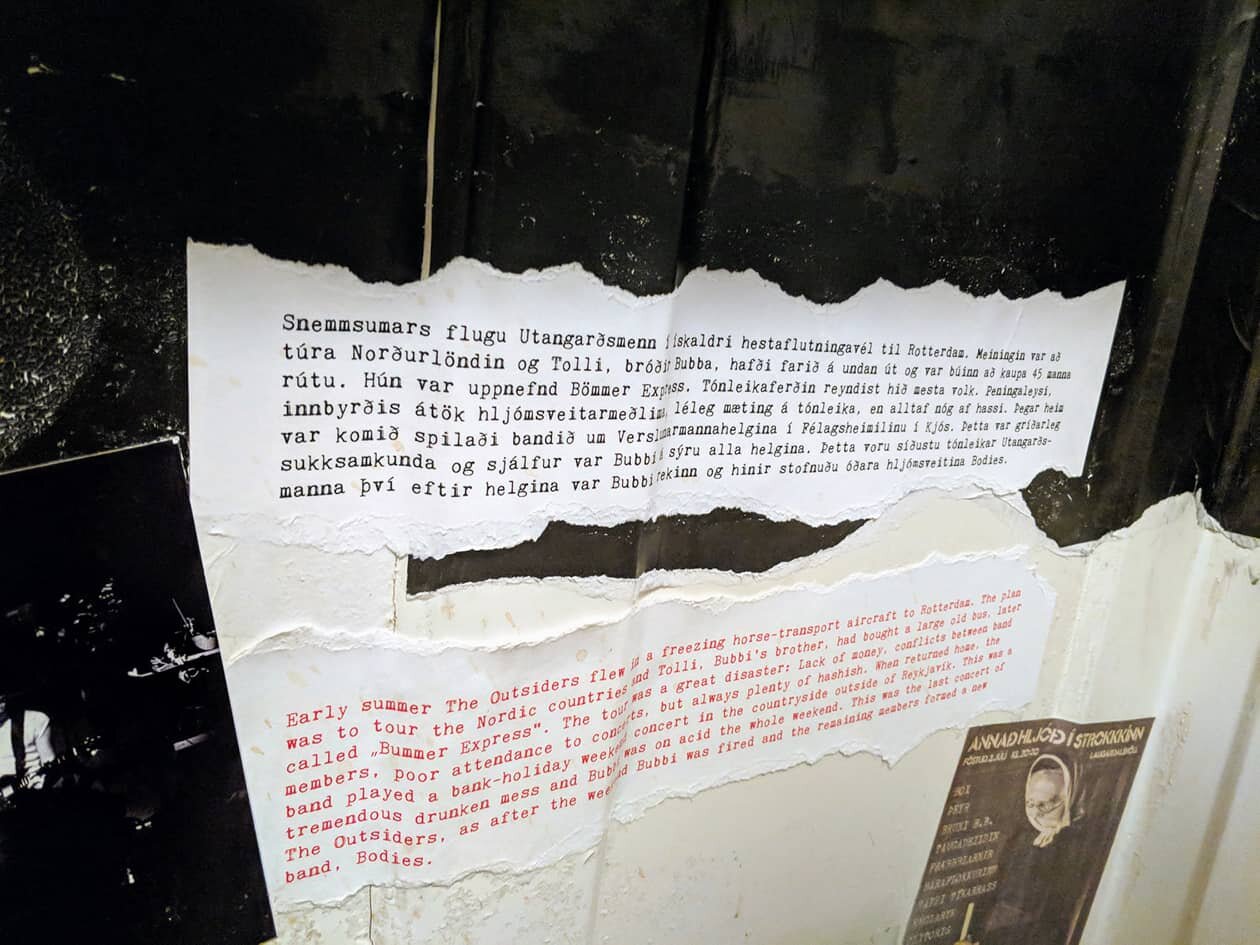 Snemmsumars flugu Utangarðsmenn í ískaldri hestaflutningavél til Rotterdam. Meiningin var að
túra Norðurlöndin og Tolli, bróðir Bubba, hafði farið á undan út og var búinn að kaupa 45 manna
rútu. Hún var uppnefnd Bömmer Express. Tónleikaferðin reyndist hið mesta volk. Peningaleysi,
innbyrðis átök hljómsveitarmeðlima, léleg mæting á tónleika, en alltaf nóg af hassi. Þegar heim
var komið spilaði bandið um Verslunarmannahelgina í Félagsheimilinu í Kjós. Þetta var gríðarleg
sukksamkunda og sjálfur var Bubbi á sýru alla helgina. Þetta voru síðustu tónleikar Utangarðs-
manna því eftir helgina var Bubbi rekinn og hinir stofnuðu óðara hljómsveitina Bodies.
Early summer The Outsiders flew in a freezing horse-transport aircraft to Rotterdam. The plan
was to tour the Nordic countries and Tolli, Bubbi's brother, had bought a large old bus, later
called „Bummer Express". The tour was a great disaster: Lack of money, conflicts between band
members, poor attendance to concerts, but always plenty of hashish. When returned home, the
band played a bank-holiday weekend concert in the countryside outside of Reykjavík. This was a
tremendous drunken mess and Bubbi was on acid the whole weekend. This was the last concert of
The Outsiders, as after the weekend Bubbi was fired and the remaining members formed a new
band, Bodies.
ANNAÐ HLJÓÐ Í STROKKKINN
LAUGARDALSHÖLL
ÞEYR
BRUNI B.B.
TAUGADEILDIN
FRÆBBBLARNIR
BARAFLOKKURINN
TAPPI TÍKARRASS